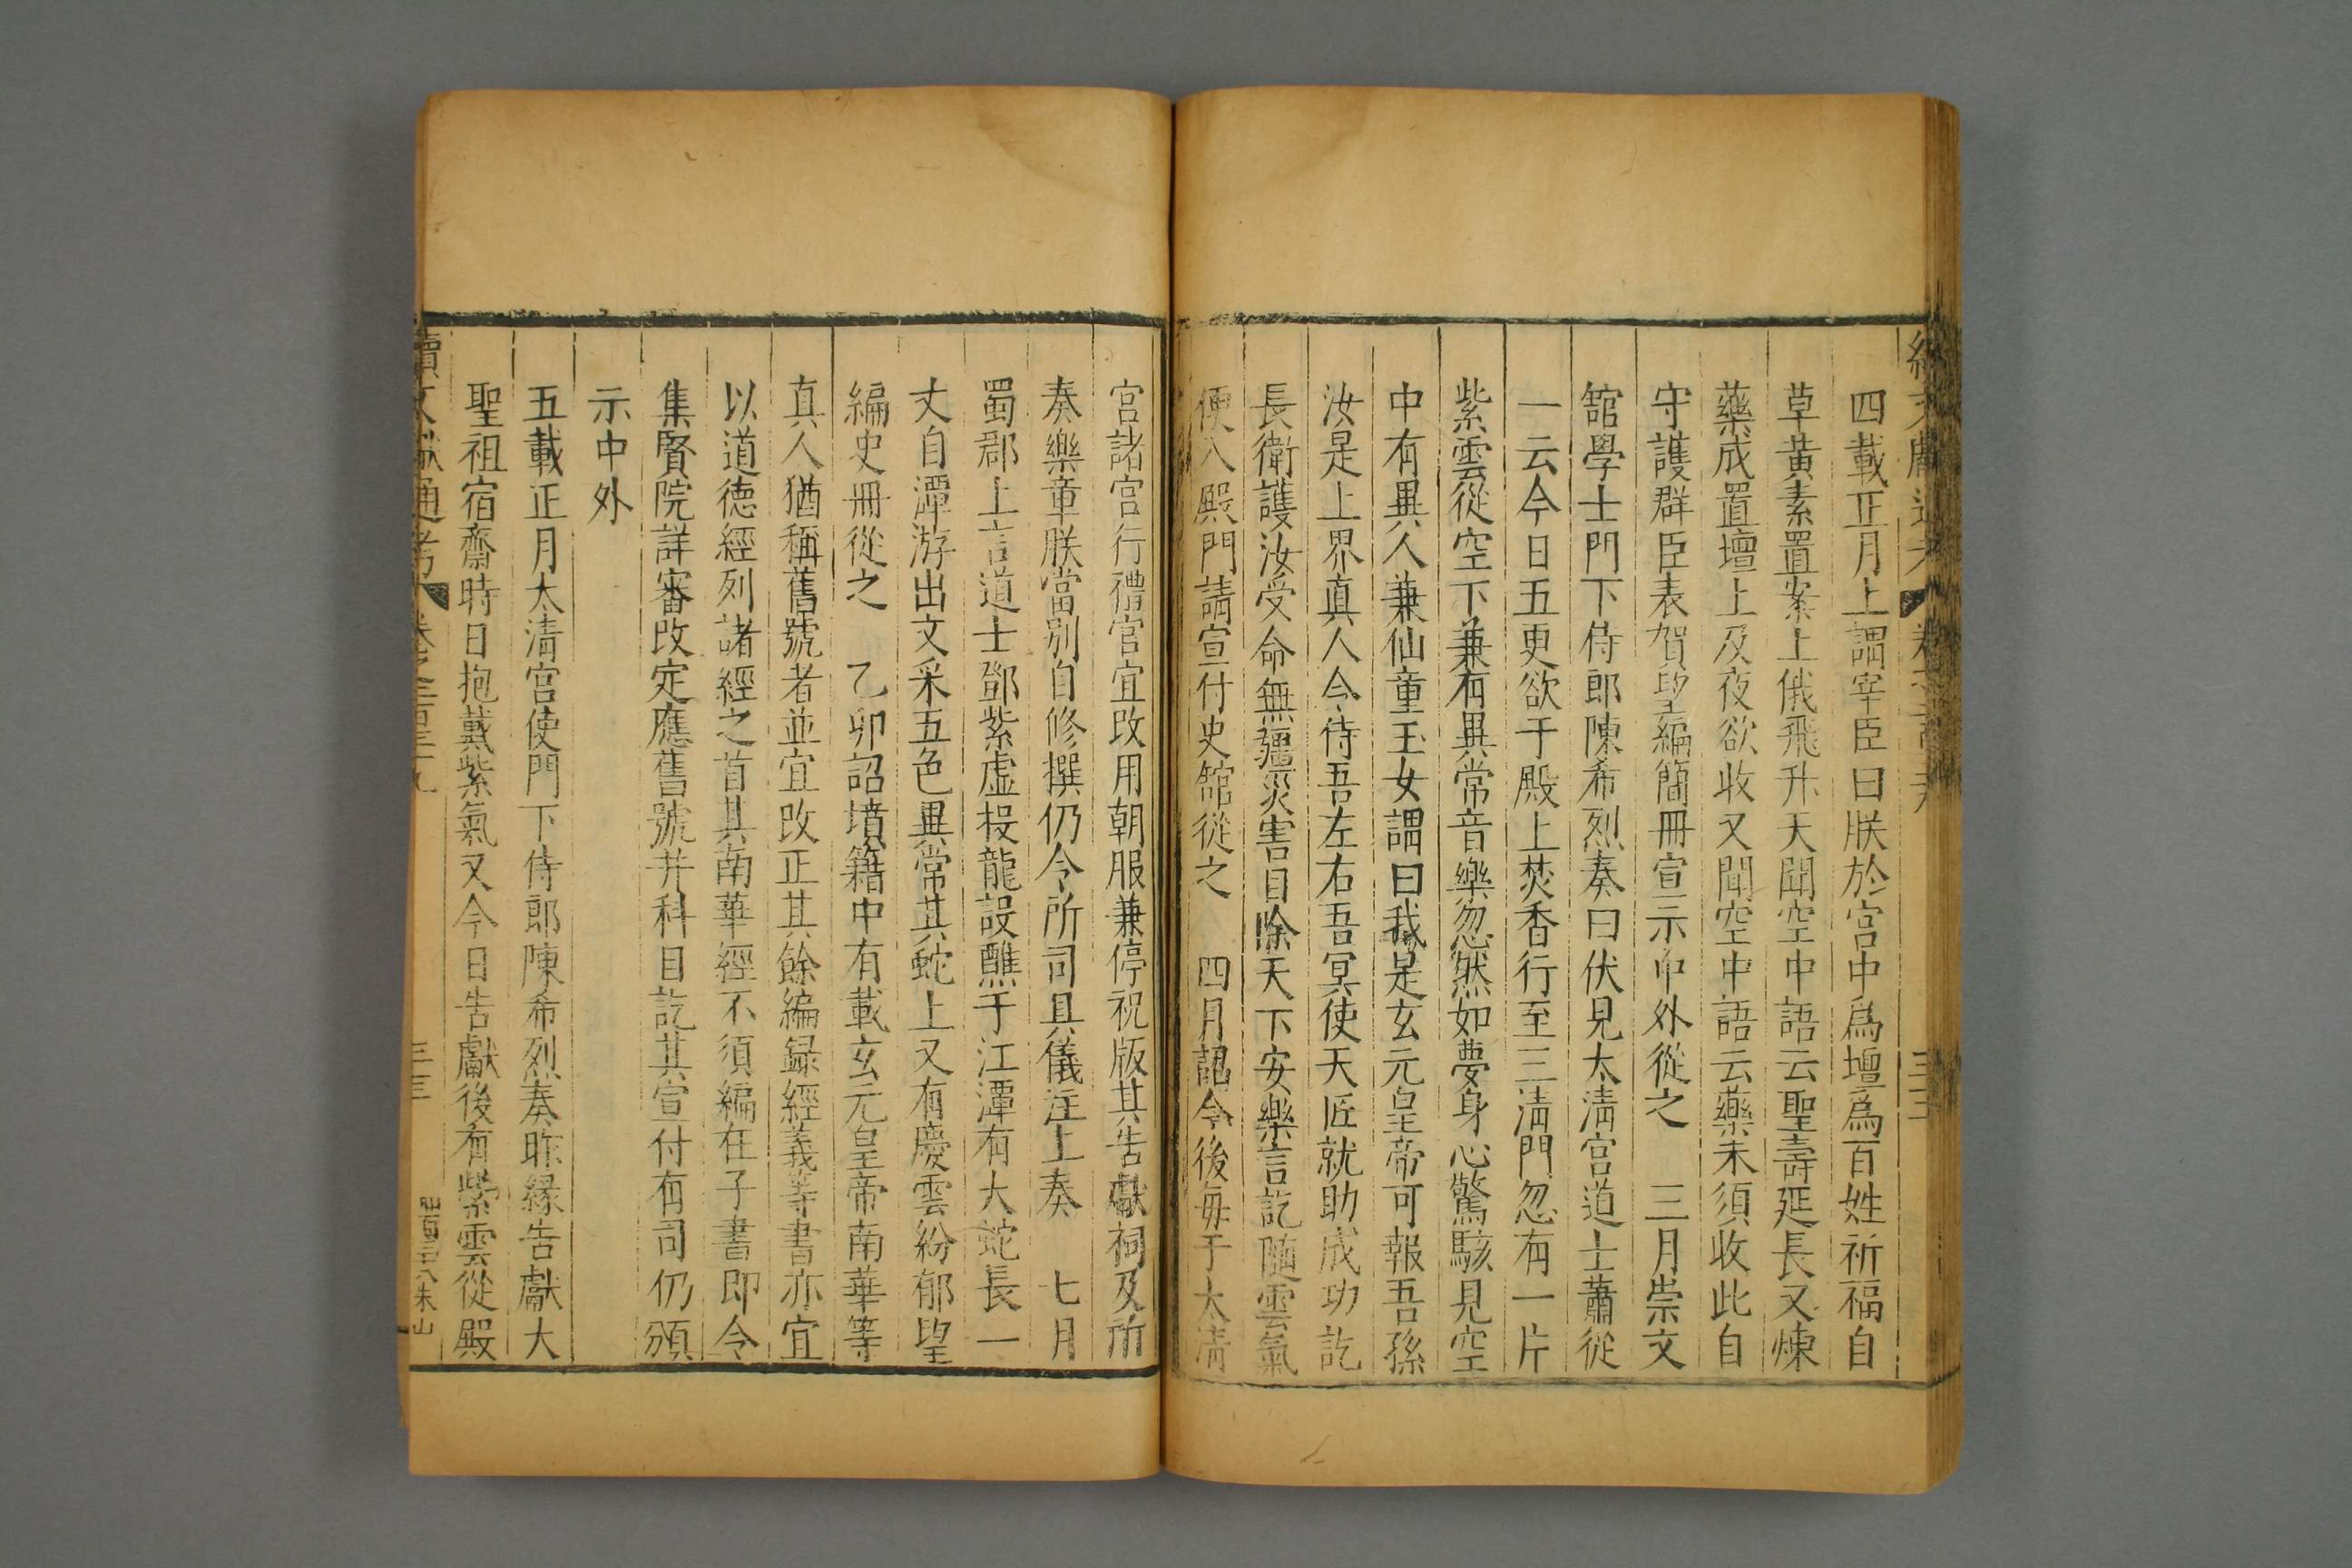 四載正月上謂宰臣曰朕於宮中爲壇爲百姓祈福自
草黃素置案上俄飛升天聞空中語云聖壽延長又煉
藥成置壇上及夜欲收又聞空中語云藥未須收此自
守護群臣表賀望編簡冊宣示中外從之　三月崇文
舘學士門下侍郎陳希烈奏曰伏見太清宮道士蕭從
一云今日五更欲于殿上焚香行至三清門忽有一片
紫雲從空下兼有異常音樂忽然如夢身心驚駭見空
中有異人兼仙童玉女謂曰我是玄元皇帝可報吾孫
汝是上界真人令侍吾左右吾冥使天匠就助成功訖
長衛護汝受命無疆災害自除天下安樂言訖隨雲氣
便入殿門請宣付史舘從之　四月詔今後每于太清
宮諸宮行禮官宜改用朝服兼停祝版其告獻祠及所
奏樂章朕當別自修撰仍令所司具儀注上奏　七月
蜀郡上言道士鄧紫虛投龍設醮于江潭有大蛇長一
丈自潭游出文采五色異常其蛇上又有慶雲紛郁望
編史冊從之　乙卯詔墳籍中有載玄元皇帝南華等
真人猶稱舊號者並宜改正其餘編録經義等書亦宜
以道德經列諸經之首其南華經不須編在子書即令
集賢院詳審改定應舊號并科目訖其宣付有司仍頒
示中外
五載正月太清宮使門下侍郎陳希烈奏昨緣告獻大
聖祖宿齋時日抱戴紫氣又今日告獻後有紫雲從殿
續文獻通考　卷之二百三十九
三三